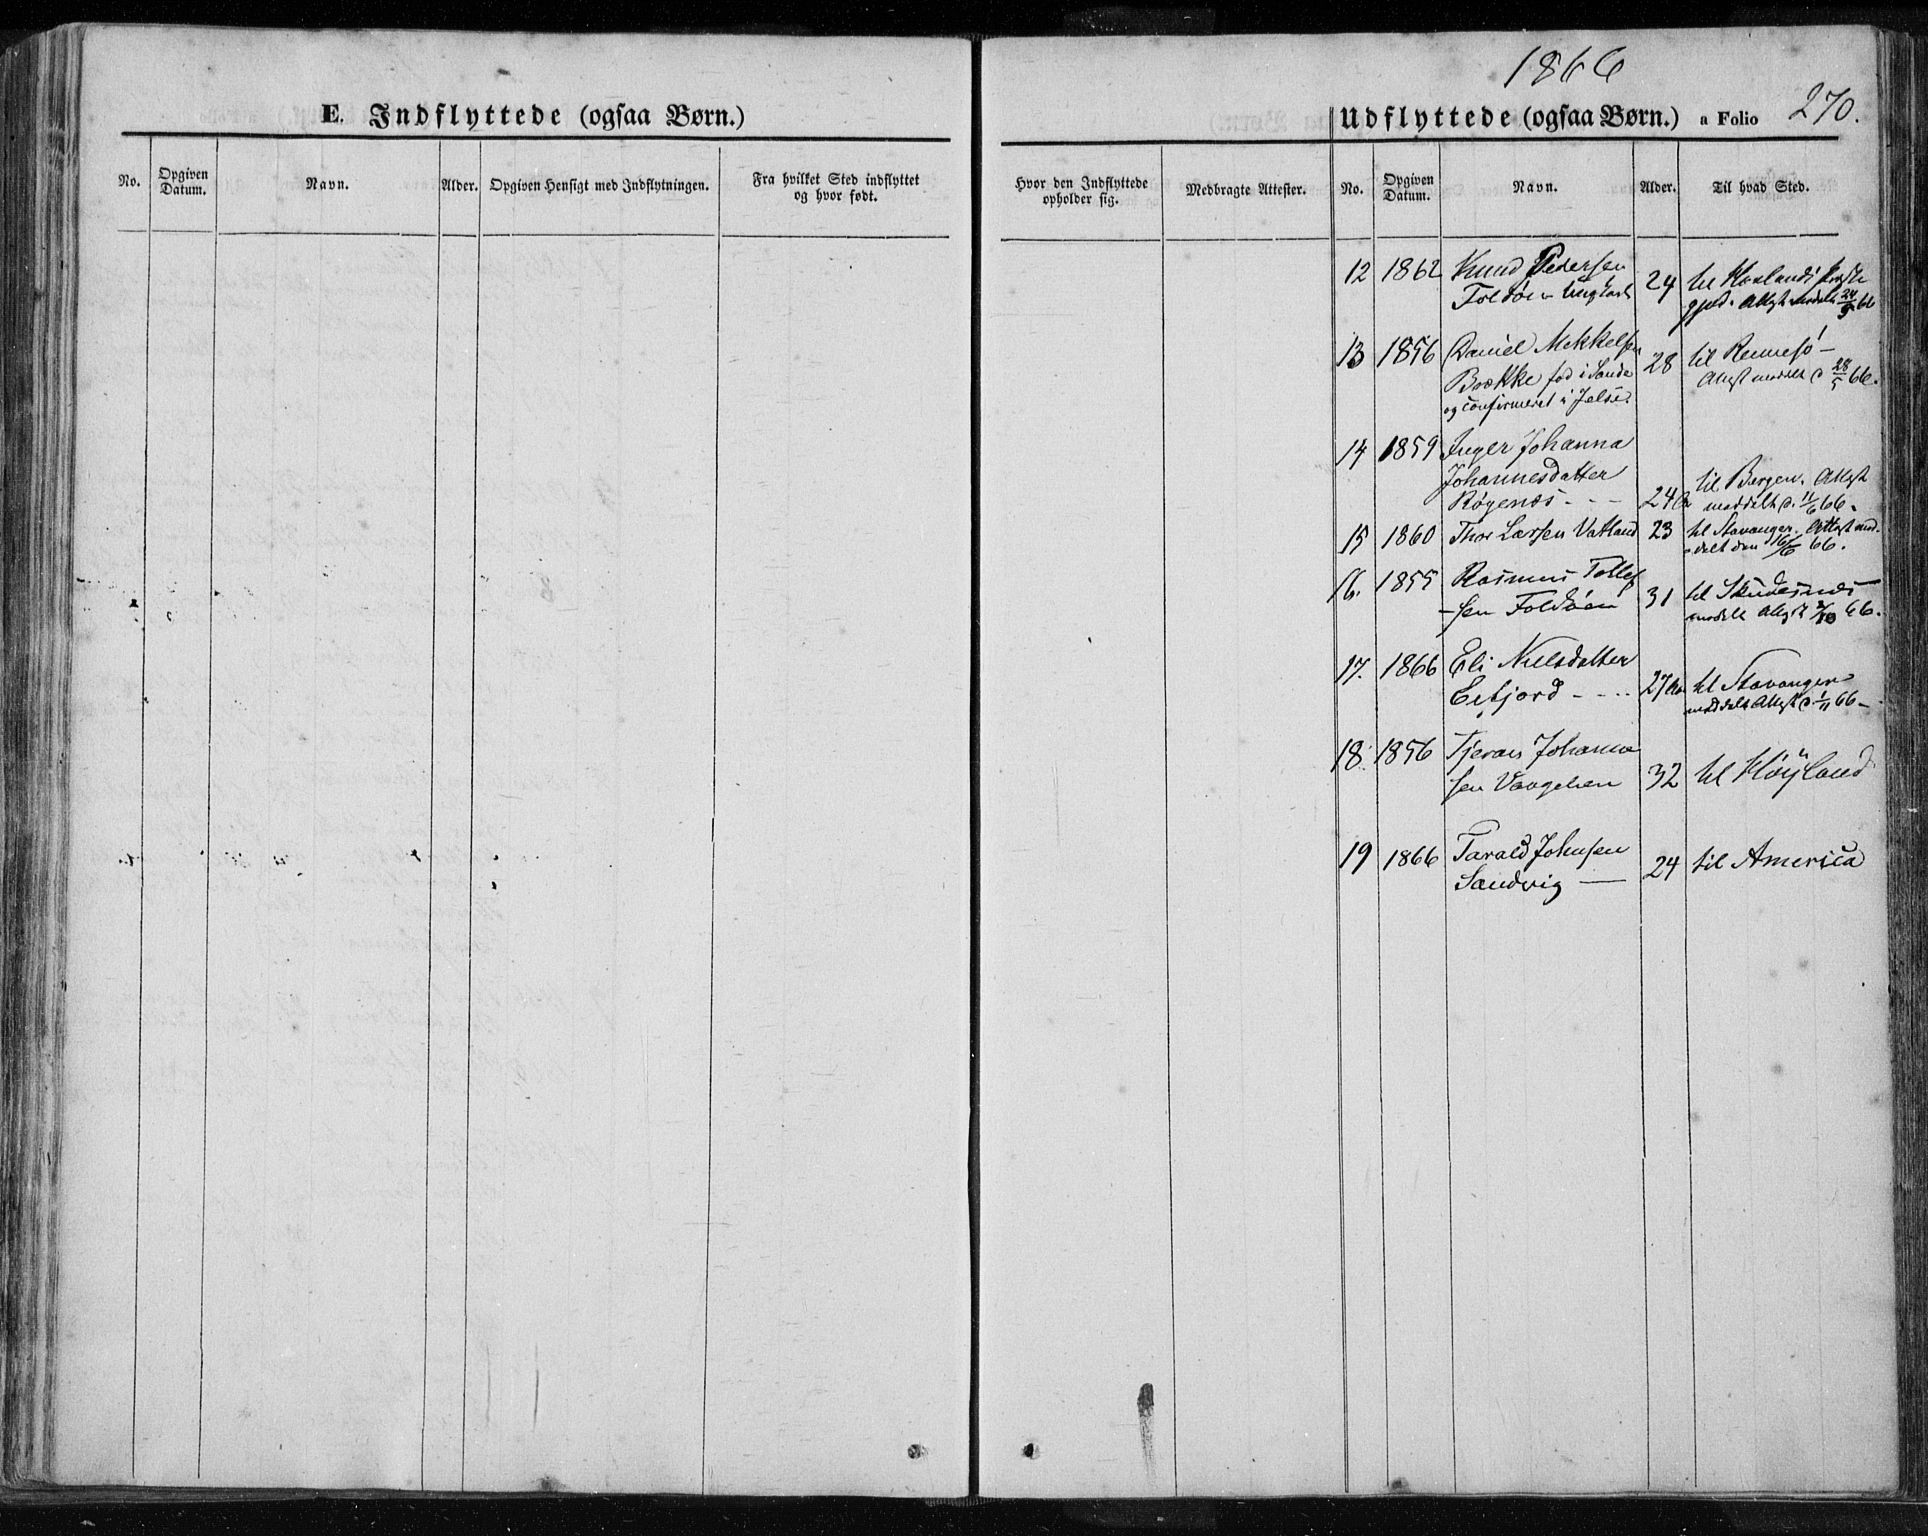 1866
E. Indflyttede (ogsaa Børn.)
Udflyttede (ogsaa Børn.) a Folio 270.
No. Opgiven Datum. Navn. Alder. Opgiven Hensigt med Indflytningen. Fra hvilket Sted indflyttet og hvor født.
Hvor den Indflyttede opholder sig. Medbragte Attester. No. Opgiven Datum. Navn. Alder. Til hvad Sted.
12 1862 Knud Pedersen
Foldøe Ungkarl 24 til
Attest 66
13 1856 Daniel Mekkelsen 28 til Rennesø
Brække fød i Sande Attest meddelt d 28/5 66.
og confirmeret i Jelse.
14 1859 Inger Johanna
Johannesdatter til Bergen. Attest
Røgenes - - - 24 meddelt d. 11/6 66.
15 1860 Thor Larsen Vatland 23 til Stavanger. Attest med-
delt den 16/6 66.
16. 1855 Rasmus Tollef
-sen Foldøen 31 til Skudesnes
meddelt Attest /10 66.
17. 1866 Eli Nielsdatter
Eifjord - - - - 27 til Stavanger
meddelt Attest d. 1/11 66 -
18. 1856 Tjeran Johanne
sen 32 til Høyland
19 1866 Tarald Johnsen
Sandvig — 24 til America